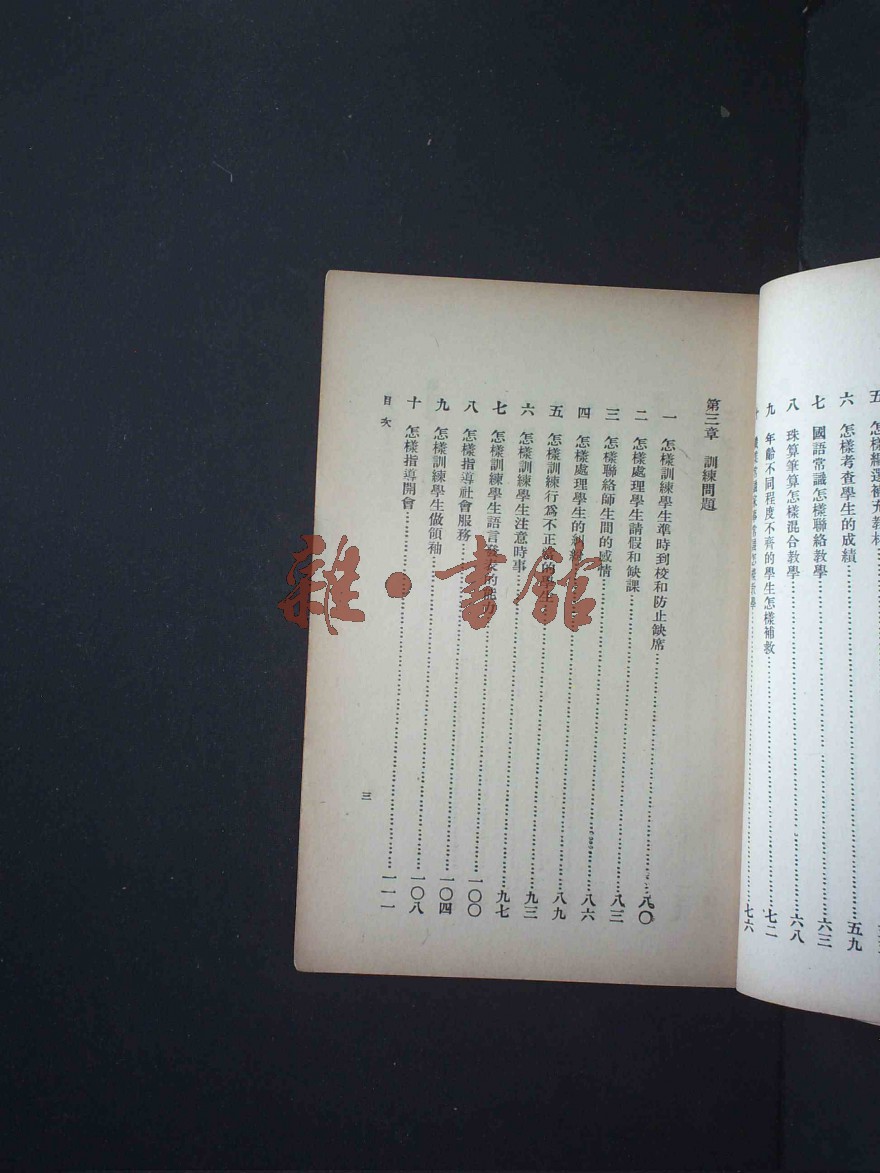 五 怎樣編選補充教材……五九
六 怎樣考查學生的成績……六三
七 國語常識怎樣聯絡教學……六八
八 珠算筆算怎樣混合教學……七二
九 年齡不同程度不齊的學生怎樣補救……七六
第三章 訓練問題
一 怎樣訓練學生準時到校和防止缺席……八〇
二 怎樣處理學生請假和缺課……八三
三 怎樣聯絡師生間的感情……八六
四 怎樣處理學生的糾紛……八九
五 怎樣訓練行為不正當的學生……九三
六 怎樣訓練學生注意時事……九七
七 怎樣訓練學生語言發表的能力……一〇〇
八 怎樣指導社會服務……一〇四
九 怎樣訓練學生做領袖……一〇八
十 怎樣指導開會……一一一
目次
三
雜·書館